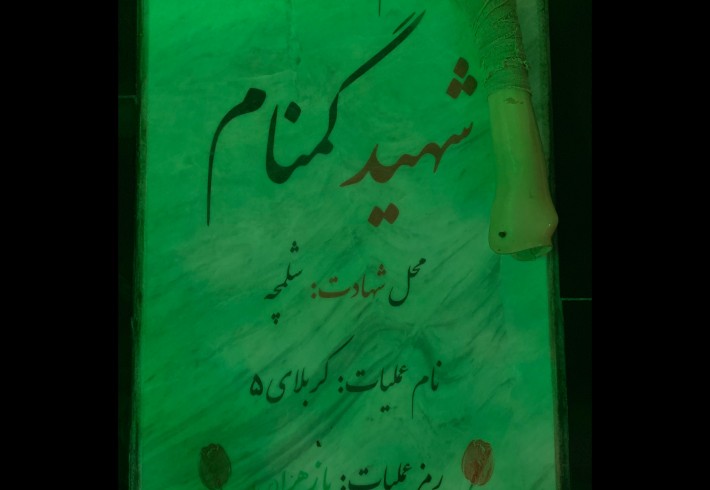 شهید گمنام
محل شهادت: شلمچه
نام عملیات: کربلای ۵
رمز عملیات: یازهرا